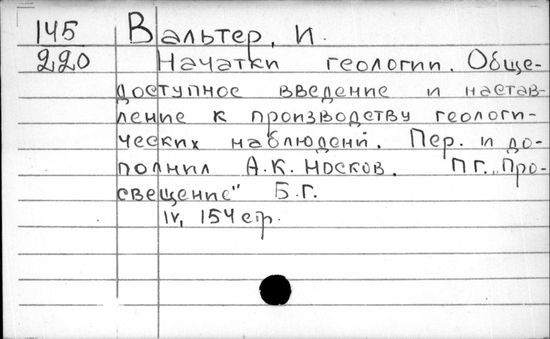 145 Вальтер, И.
220 Начатки геологии. Обще-
доступное введение и настав-
ление к производству геологи-
ческих наблюдений. Пер. и до-
полнил А.К. Носков. ПГ. „Про-
свещение" Б.Г.
IV, 154 стр.